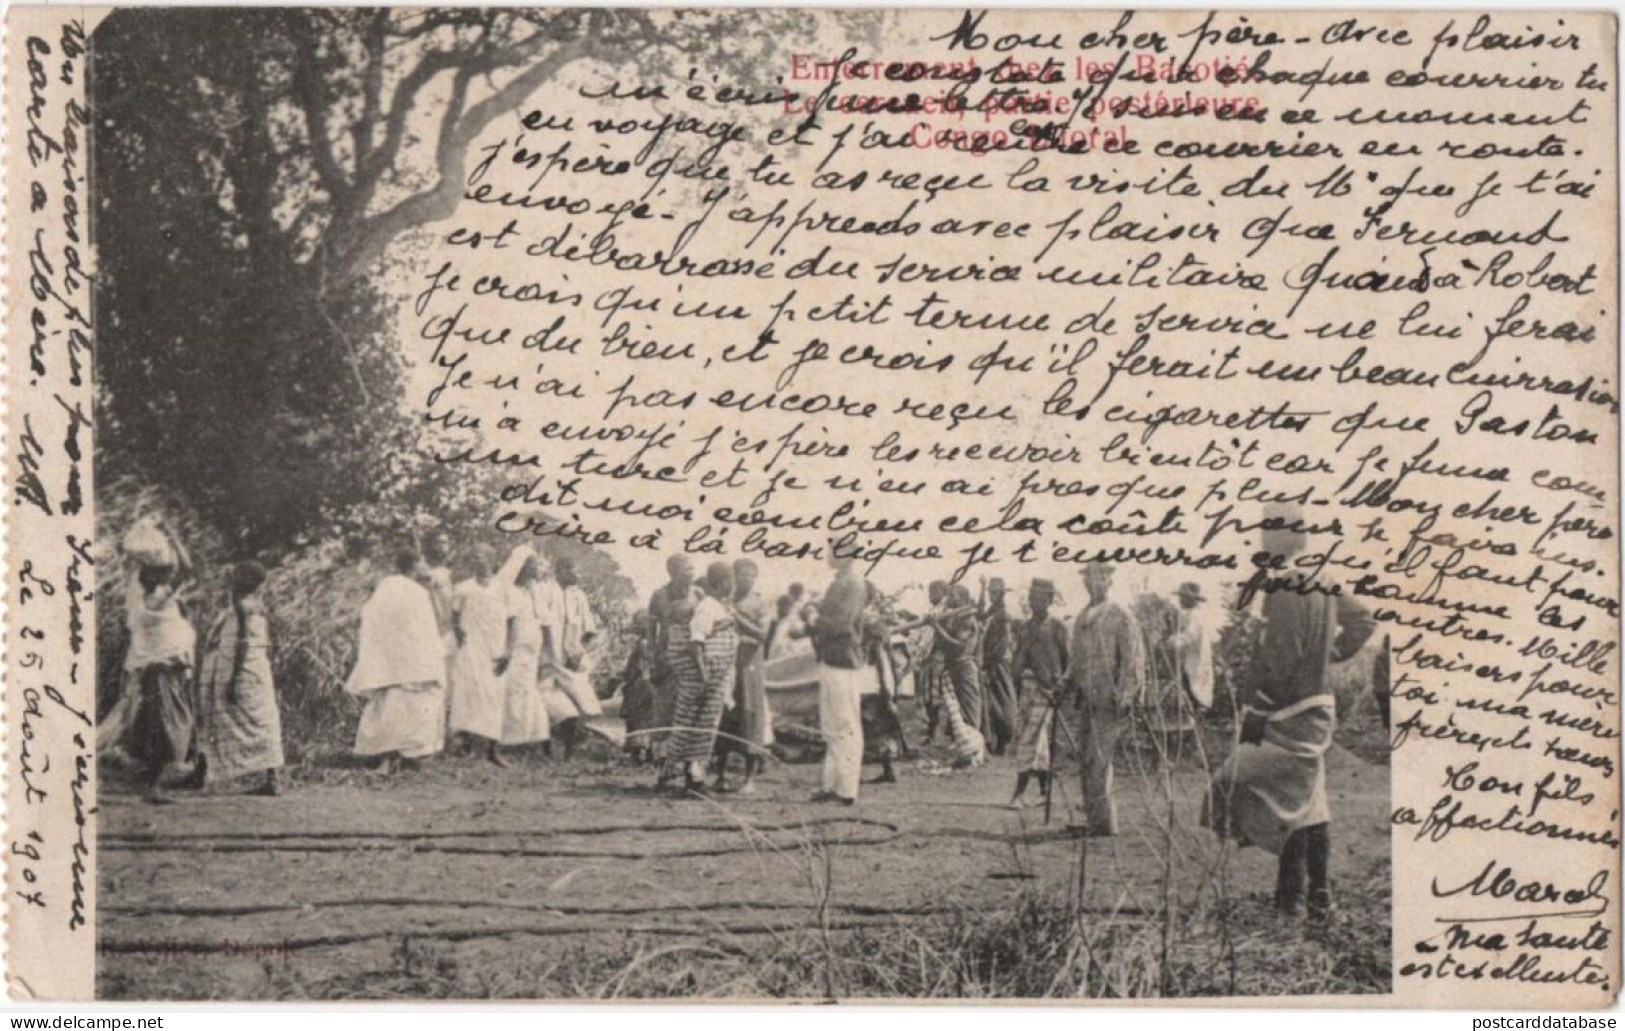 Mon cher père - avec plaisir
je constate qu'à chaque courrier tu
m'écris une lettre Je suis en ce moment
en voyage et j'ai rentré ce courrier en route.
j'espère que tu as reçu la visite du Mr que je t'ai
envoyé - J'apprends avec plaisir que Fernand
est débarrassé du service militaire quand à Robert
je crois qu'un petit terme de service ne lui ferai
que du bien, et je crois qu'il ferait un beau Cuirrassier
Je n'ai pas encore reçu les cigarettes que Gaston
m'a envoyé j'espère les recevoir bientôt car je fume com
un turc et je n'en ai presque plus - Mon cher père
dit moi combien cela coûte pour se faire ins-
crire à la basilique je t'enverrai ce qu'il faut pour
faire comme les
autres. Mille
baisers pour
toi ma mère
frères et sœurs
Ton fils
affectionné
Marcel
Ma santé
est exellente.
Enterrement chez les Bacotjés
Le cercueil, partie postérieure
Congo littoral
carte à Mère. Le 25 août 1907
R. Visser, Déposé
postcarddatabase